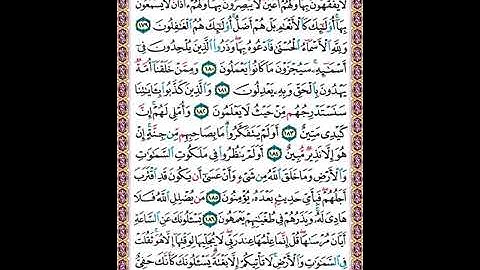 لَا يَفْقَهُونَ بِهَا وَلَهُمْ أَعْيُنٌ لَا يُبْصِرُونَ بِهَا وَلَهُمْ ءَاذَانٌ لَا يَسْمَعُونَ
بِهَا أُوْلَٰٓئِكَ كَٱلْأَنْعَٰمِ بَلْ هُمْ أَضَلُّ أُوْلَٰٓئِكَ هُمُ ٱلْغَٰفِلُونَ
١٧٩ وَلِلَّهِ ٱلْأَسْمَآءُ ٱلْحُسْنَىٰ فَٱدْعُوهُ بِهَا وَذَرُوا۟ ٱلَّذِينَ يُلْحِدُونَ فِىٓ
أَسْمَٰٓئِهِۦ سَيُجْزَوْنَ مَا كَانُوا۟ يَعْمَلُونَ ١٨٠ وَمِمَّنْ خَلَقْنَآ أُمَّةٌ
يَهْدُونَ بِٱلْحَقِّ وَبِهِۦ يَعْدِلُونَ ١٨١ وَٱلَّذِينَ كَذَّبُوا۟ بِـَٔايَٰتِنَا
سَنَسْتَدْرِجُهُم مِّنْ حَيْثُ لَا يَعْلَمُونَ ١٨٢ وَأُمْلِى لَهُمْ إِنَّ
كَيْدِى مَتِينٌ ١٨٣ أَوَلَمْ يَتَفَكَّرُوا۟ مَا بِصَاحِبِهِم مِّن جِنَّةٍ إِنْ
هُوَ إِلَّا نَذِيرٌ مُّبِينٌ ١٨٤ أَوَلَمْ يَنظُرُوا۟ فِى مَلَكُوتِ ٱلسَّمَٰوَٰتِ
وَٱلْأَرْضِ وَمَا خَلَقَ ٱللَّهُ مِن شَىْءٍ وَأَنْ عَسَىٰٓ أَن يَكُونَ قَدِ ٱقْتَرَبَ
أَجَلُهُمْ فَبِأَىِّ حَدِيثٍۭ بَعْدَهُۥ يُؤْمِنُونَ ١٨٥ مَن يُضْلِلِ ٱللَّهُ فَلَا
هَادِىَ لَهُۥ وَيَذَرُهُمْ فِى طُغْيَٰنِهِمْ يَعْمَهُونَ ١٨٦ يَسْـَٔلُونَكَ عَنِ ٱلسَّاعَةِ
أَيَّانَ مُرْسَىٰهَا قُلْ إِنَّمَا عِلْمُهَا عِندَ رَبِّى لَا يُجَلِّيهَا لِوَقْتِهَآ إِلَّا هُوَ ثَقُلَتْ
فِى ٱلسَّمَٰوَٰتِ وَٱلْأَرْضِ لَا تَأْتِيكُمْ إِلَّا بَغْتَةً يَسْـَٔلُونَكَ كَأَنَّكَ حَفِىٌّ